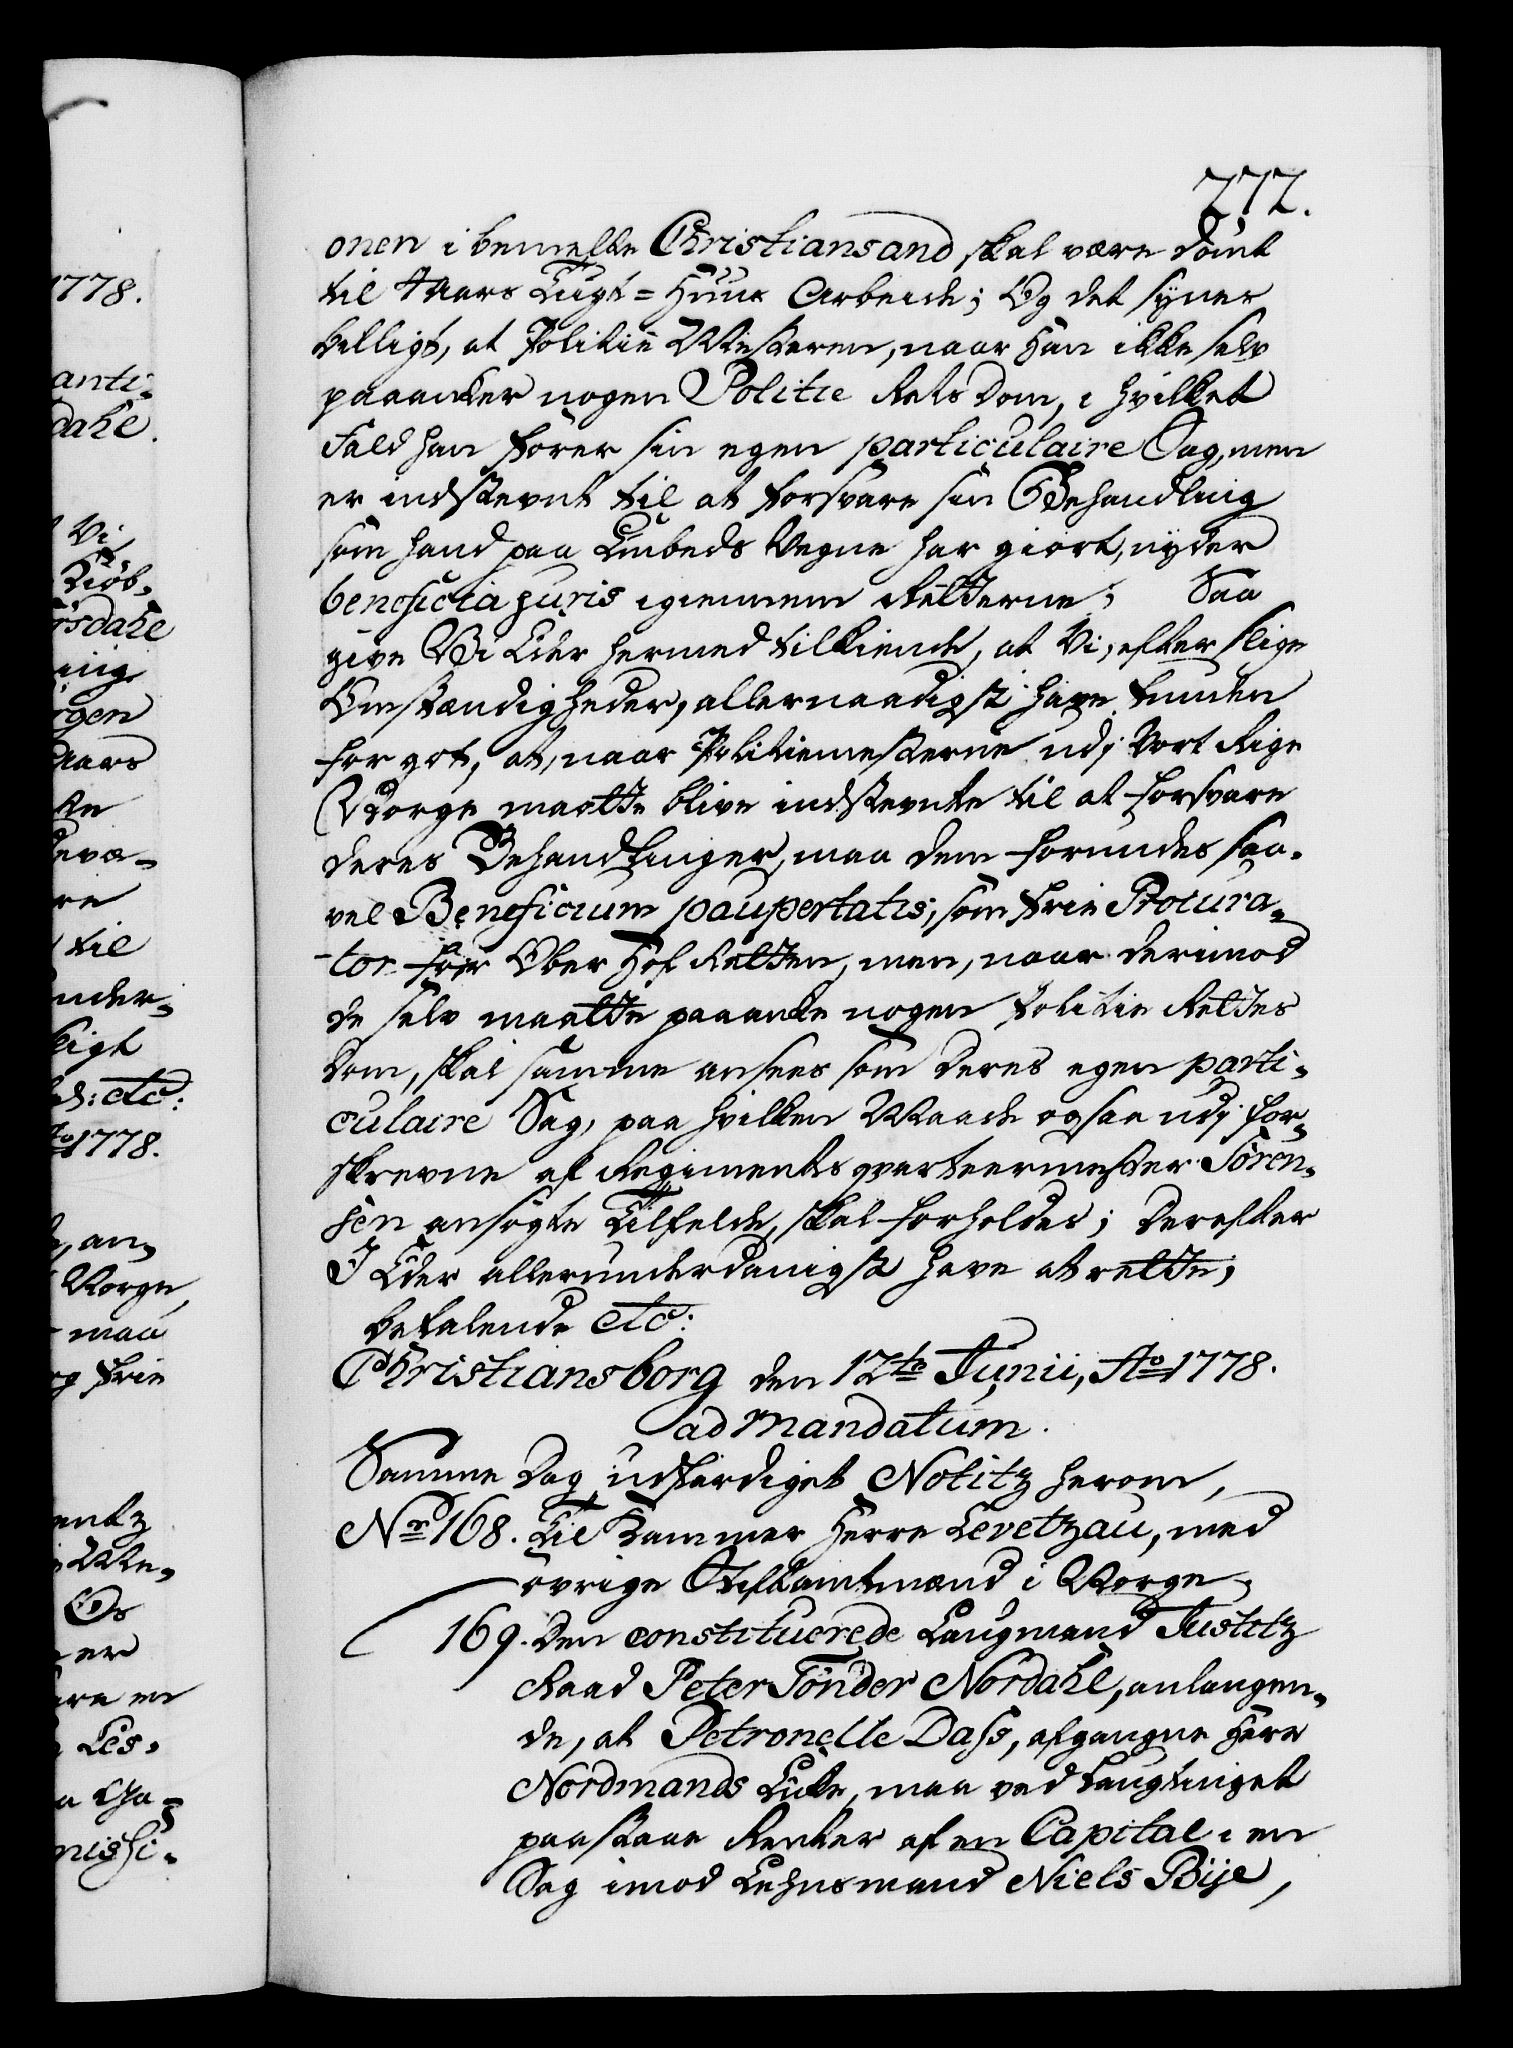 277.
onen i bemelte Christiansand skal være dömt
til 4 Aars Tugt=Huus Arbeide; Og det synes
billigt, at Politie Mesteren, naar han ikke selv
paaanker nogen Politie Rets Dom, i hvilket
Fald han förer sin egen particulaire Sag, men
er indstevnt til at forsvare sin Behandling
som hand paa Embeds Vegne har giort, nyder
beneficia juris igiennem Retterne; Saa
give Vi Eder hermed tilkiende, at Vi, efter slige
Omstændigheder, allernaadigst have funden
for got, at, naar Politiemesterne udj Vort Rige
Norge maatte blive indstevnte til at forsvare
deres Behandlinger, maa dem forundes saa-
vel Beneficium paupertatis, som frie Procura-
tor for Ober Hof Retten, men, naar derimod
de selv maatte paaanke nogen Politie Rettes
Dom, skal samme ansees som deres egen parti-
culaire Sag, paa hvilken Maade ogsaa udj for-
skrevne af Regimentsqvarteermester Sören-
sen ansögte Tilfelde, skal forholdes; Derefter
I Eder allerunderdanigst have at rette,
befalende etc:
Christiansborg den 12te Junii, Ao 1778.
ad mandatum.
Samme Dag udferdiget Notitz herom,
No 168. Til Kammer Herre Levetzau, med
övrige Stiftamtmænd i Norge.
169. Den constituerede Laugmand Justitz
Raad Peter Tönder Nordahl, anlangen-
de, at Petronelle Dass, afgangne Herr
Nordmands Enke, maa ved Laugtinget
paastaae Renter af en Capital i en
Sag imod Lehnsmand Niels Bye,
1778.
anti-
dahl.
Vi
Kiöb-
rsdahl
ning
rgen
Aars
te
re
til
nder-
ligt
etc:
1778.
, an-
Norge,
maa
og frie
entz
Me-
Os
er
are en
Les-
a Ga-
missi-